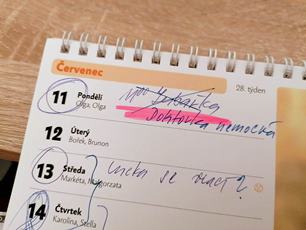 Červenec
28. týden
11 Pondělí
Olga, Olga
Doktorka nemocná
12 Úterý
Bořek, Brunon
13 Středa
Markéta, Małgorzata
se vrací?
14 Čtvrtek
Karolina, Stella